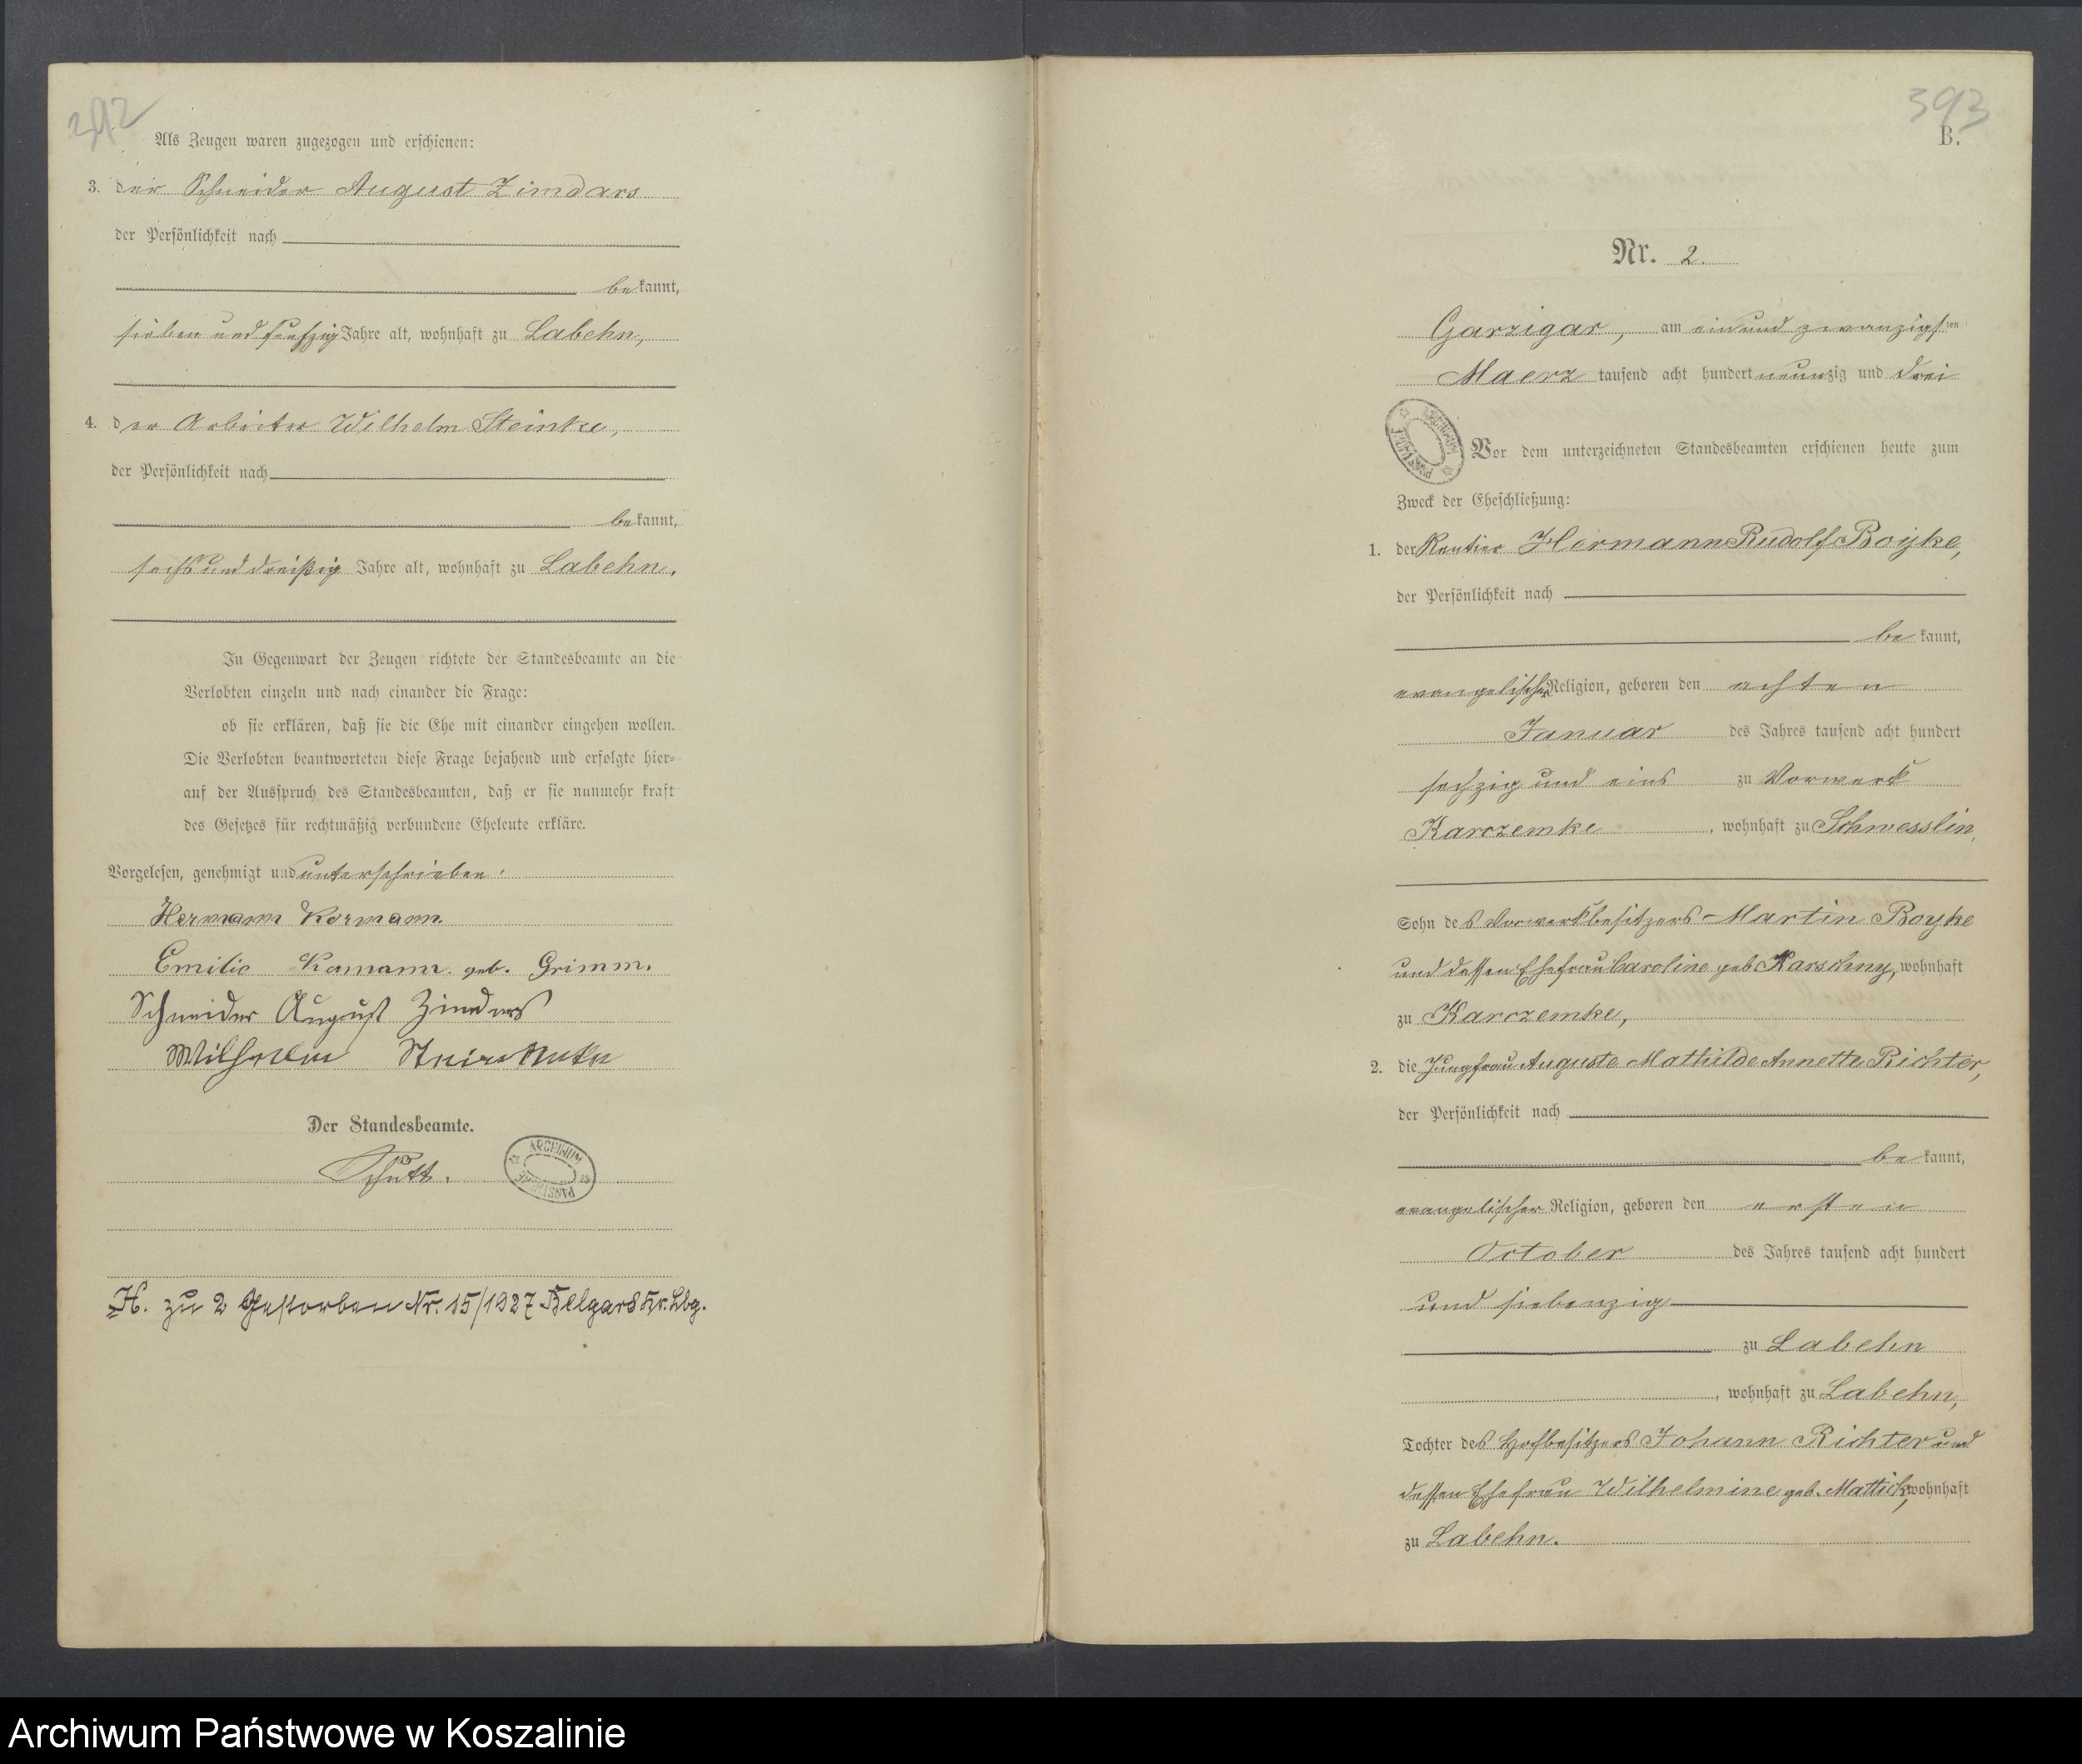 292
Als Zeugen waren zugezogen und erschienen:
3. der Schneider August Zimdars
der Persönlichkeit nach
bekannt,
sieben und fünfzig Jahre alt, wohnhaft zu Labehn,
4. der Arbeiter Wilhelm Steinke,
der Persönlichkeit nach
bekannt,
sechs und dreißig Jahre alt, wohnhaft zu Labehn.
In Gegenwart der Zeugen richtete der Standesbeamte an die
Verlobten einzeln und nach einander die Frage:
ob sie erklären, daß sie die Ehe mit einander eingehen wollen.
Die Verlobten beantworteten diese Frage bejahend und erfolgte hier-
auf der Ausspruch des Standesbeamten, daß er sie nunmehr kraft
des Gesetzes für rechtmäßig verbundene Eheleute erkläre.
Vorgelesen, genehmigt und unterschrieben.
Hermann Kormann.
Emilie Kamann geb. Grimm.
Schneider August Zimdars
Wilhelm
Der Standesbeamte.
ARCHIWUM
H. zu 2 Gestorben Nr. 15/1927 Belgard Kr. Lbg.
393
B.
Nr. 2.
Garzigar, am ein und zwanzigsten
Maerz tausend acht hundert neunzig und drei
ARCHIWUM
Vor dem unterzeichneten Standesbeamten erschienen heute zum
Zweck der Eheschließung:
1. der Rentier Hermann Rudolf Boyke,
der Persönlichkeit nach
bekannt,
evangelischer Religion, geboren den achten
Januar des Jahres tausend acht hundert
sechzig und eins zu Vorwerk
Karczemke, wohnhaft zu Schwesslin,
Sohn des Vorwerkbesitzers Martin Boyke
und dessen Ehefrau Caroline geb. Karschny, wohnhaft
zu Karczemke,
2. die Jungfrau Auguste Mathilde Annette Richter,
der Persönlichkeit nach
bekannt,
evangelischer Religion, geboren den ersten
October des Jahres tausend acht hundert
und siebenzig
zu Labehn
, wohnhaft zu Labehn,
Tochter des Hofbesitzers Johann Richter und
dessen Ehefrau Wilhelmine geb. Mattick, wohnhaft
zu Labehn.
Archiwum Państwowe w Koszalinie